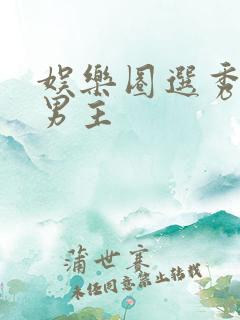 娛樂圈選秀
男王
蒲世寒
未經同意禁止轉載